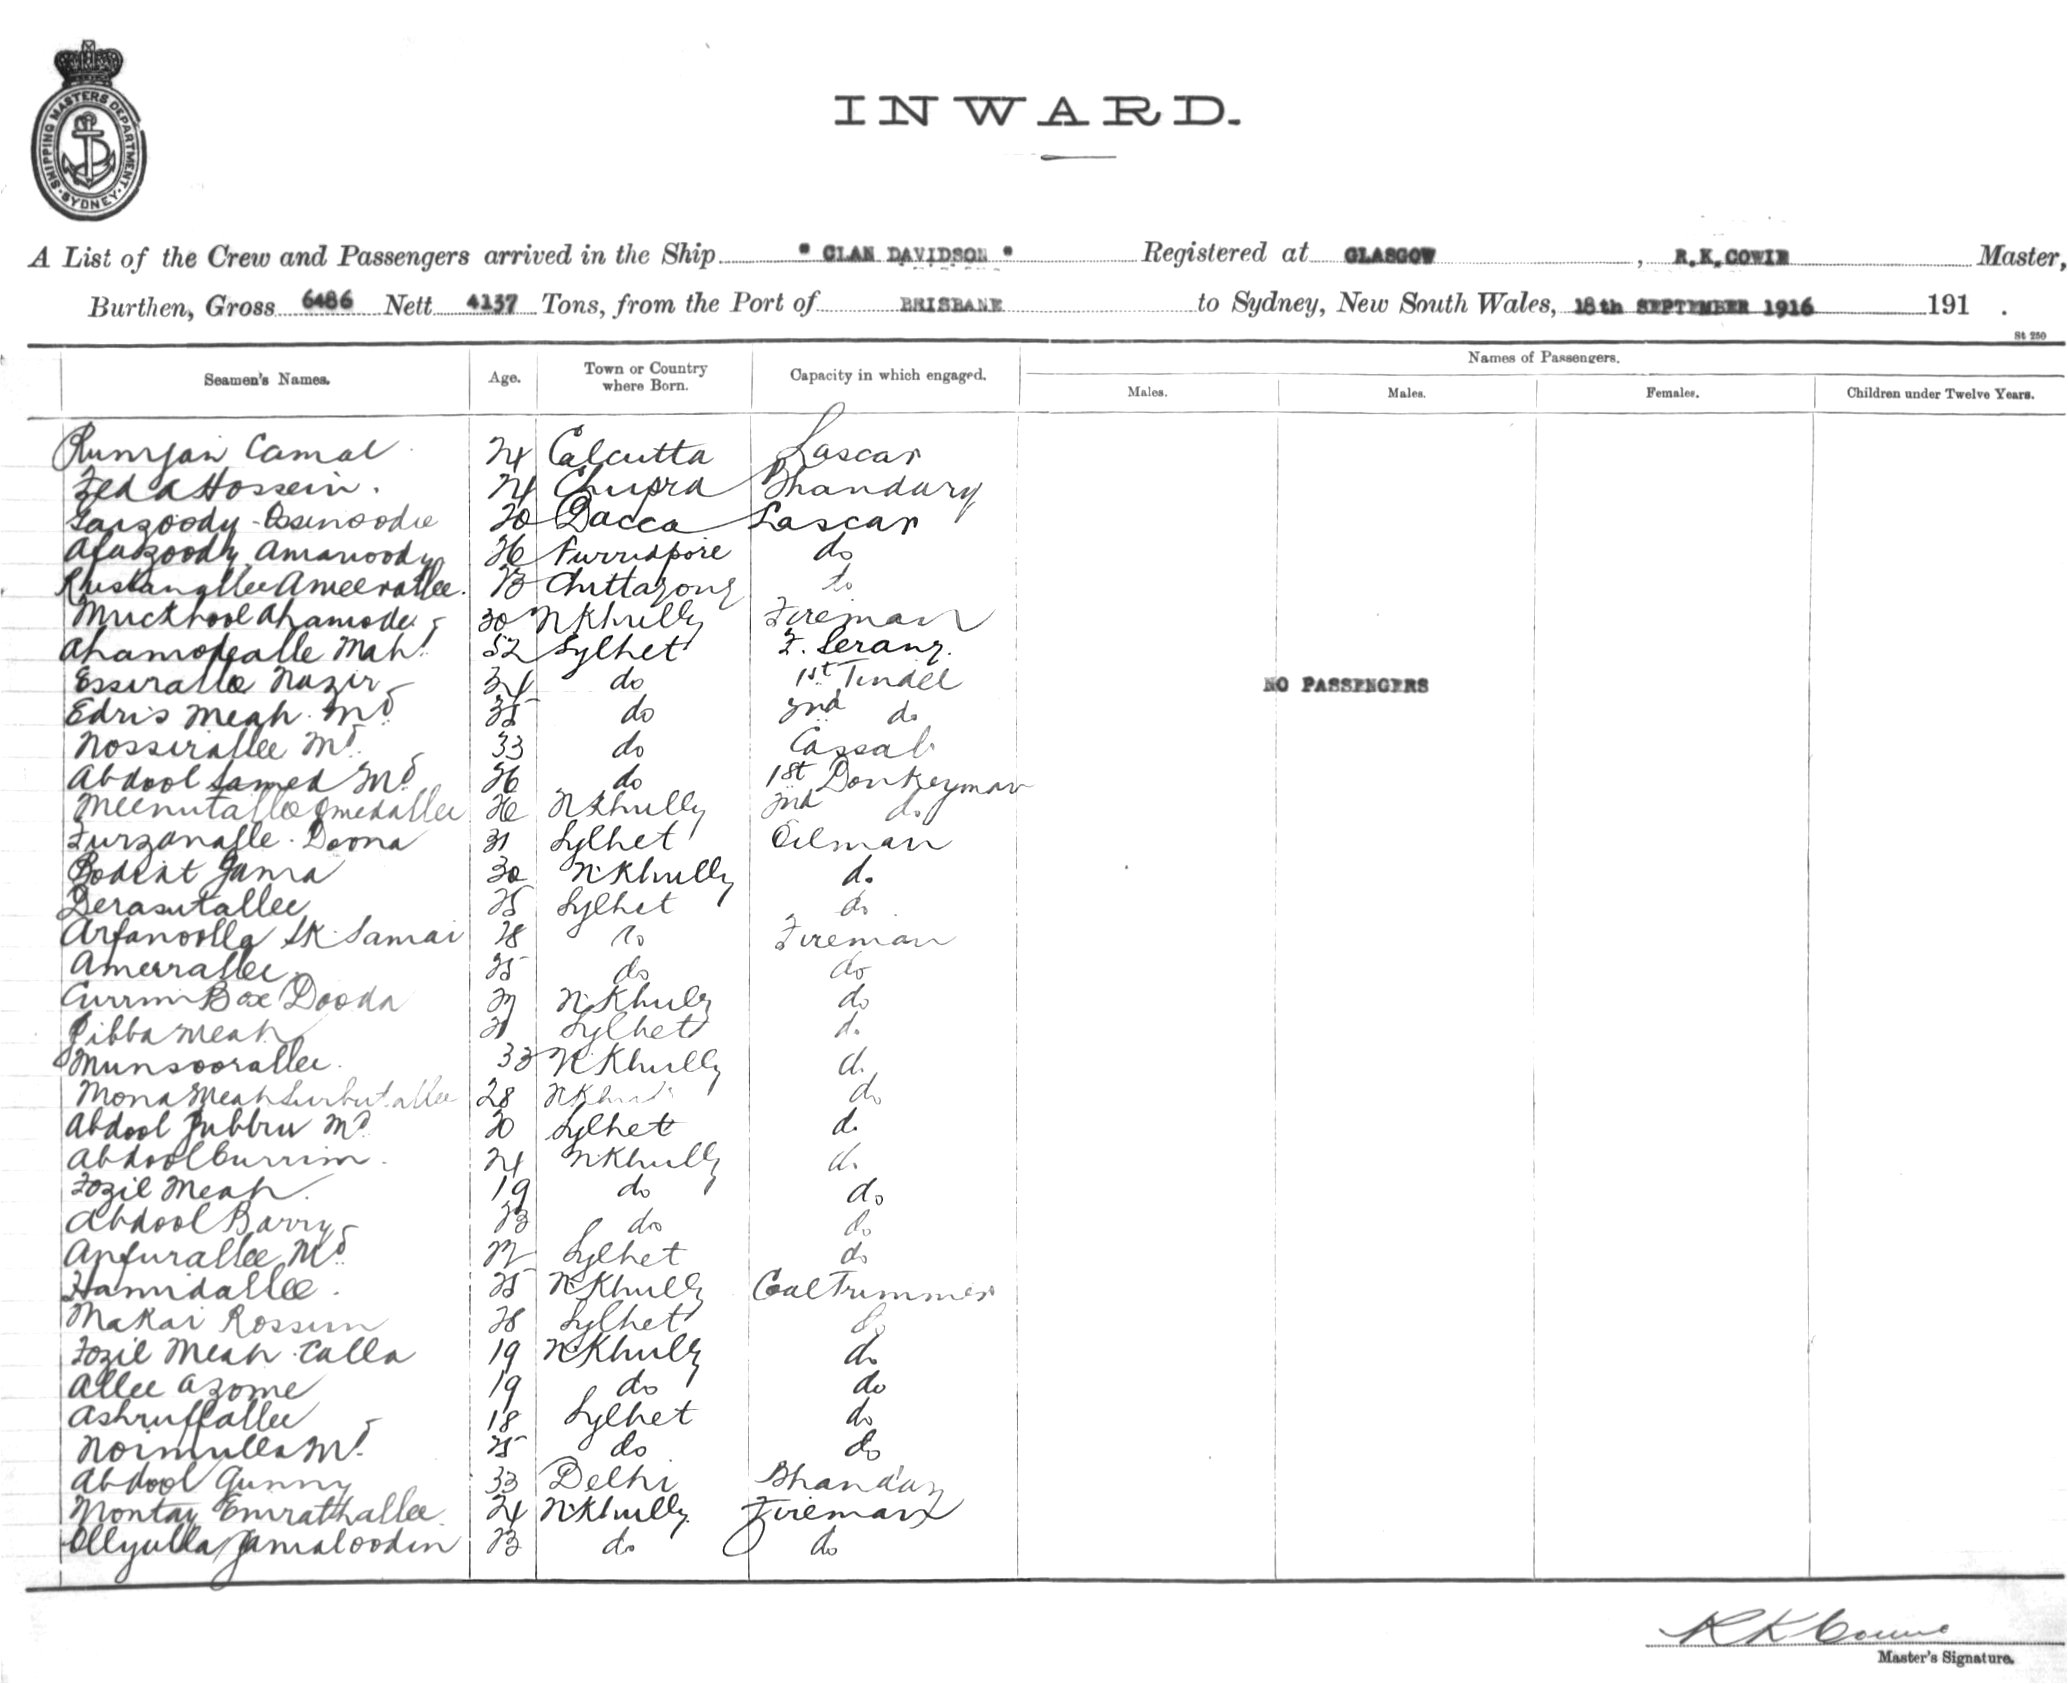 SHIPPING MASTERS DEPARTMENT · SYDNEY ·
INWARD.
A List of the Crew and Passengers arrived in the Ship " CLAN DAVIDSON " Registered at GLASGOW , R.K.COWIE Master,
Burthen, Gross 6486 Nett 4137 Tons, from the Port of BRISBANE to Sydney, New South Wales, 18th SEPTEMBER 1916 191 .
St 250
Names of Passengers.
Seamen's Names. Age. Town or Country where Born. Capacity in which engaged. Males. Males. Females. Children under Twelve Years.
Rumjan Camal 24 Calcutta Lascar
Zed A Hossein. 24 Chupra Bhandary
Saizoody Ossinoodie 20 Dacca Lascar
Afazoody Amanoody 26 Furridpore do
Rustanallee Ameerallee. 23 Chittagong do
Muckbool Ahamode 30 N Khully Fireman
Ahamodealle Mahd 52 Sylhet F. Serang.
Essirallee Nazir 34 do 1st Tindel
Edris Meah Md 35 do 2nd do
Nossirallee Md 33 do Cassab
Abdool Samed Md 26 do 1st Donkeyman
Meenutallee Omedallee 26 N Khully 2nd do
Furzanalle Doona 31 Sylhet Oilman
Bodiat Jama 30 N. Khully do
Derasutallee 25 Sylhet do
Arfanoolla SK. Samai 28 do Fireman
Ameerallee 25 do do
Currim Box Dooda N. Khully do
Jibba Meah 21 Sylhet do
Munsoorallee. 33 N. Khully do
Mona Meah Surbutallee 28 N Khully do
Abdool Jubbru Md 20 Sylhet do
Abdool Currim. 24 N. Khully do
Fozil Meah. 19 do do
Abdool Barry 23 do do
Anfurallee Md 22 Sylhet do
Hamidallee. 25 N. Khully Coal Trimmer
Makai Rossim 28 Sylhet do
Fozil Meah Calla 19 N. Khully do
Allee Azome 19 do do
Ashruffallee 18 Sylhet do
Noimulla Md 25 do do
Abdool Gunny 33 Delhi Bhandary
Montaz Emrathallee 24 N. Khully Fireman
Ollyulla Jamaloodin 23 do do
NO PASSENGERS
R K Cowie
Master's Signature.